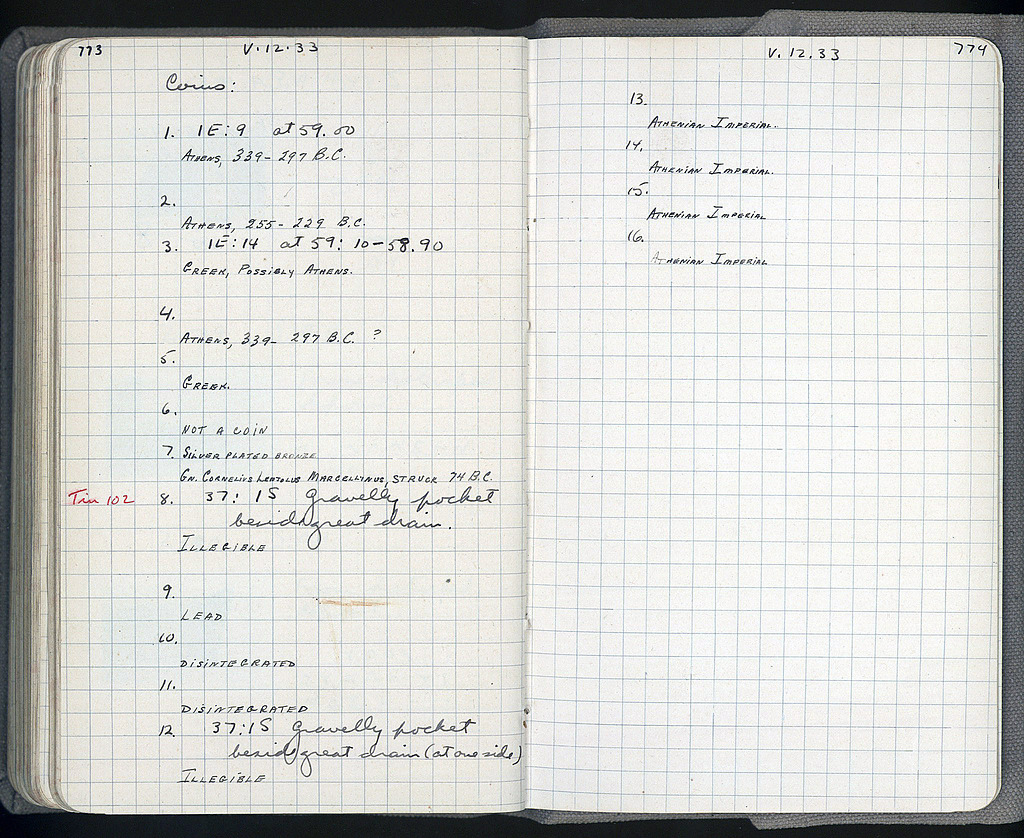 773
V.12.33
Coins:
1. 1E:9 at 59.00
ATHENS, 339-297 B.C.
2.
ATHENS, 255-229 B.C.
3. 1E:14 at 59:10-58.90
GREEK, POSSIBLY ATHENS.
4.
ATHENS, 339-297 B.C. ?
5.
GREEK.
6.
NOT A COIN
7. SILVER PLATED BRONZE
GN. CORNELIUS LENTOLUS MARCELLINUS, STRUCK 74 B.C.
Tin 102
8. 37:1S gravelly pocket
beside great drain.
ILLEGIBLE
9.
LEAD
10.
DISINTEGRATED
11.
DISINTEGRATED
12. 37:1S gravelly pocket
beside great drain (at one side)
ILLEGIBLE
V.12.33
774
13.
ATHENIAN IMPERIAL.
14.
ATHENIAN IMPERIAL.
15.
ATHENIAN IMPERIAL
16.
ATHENIAN IMPERIAL